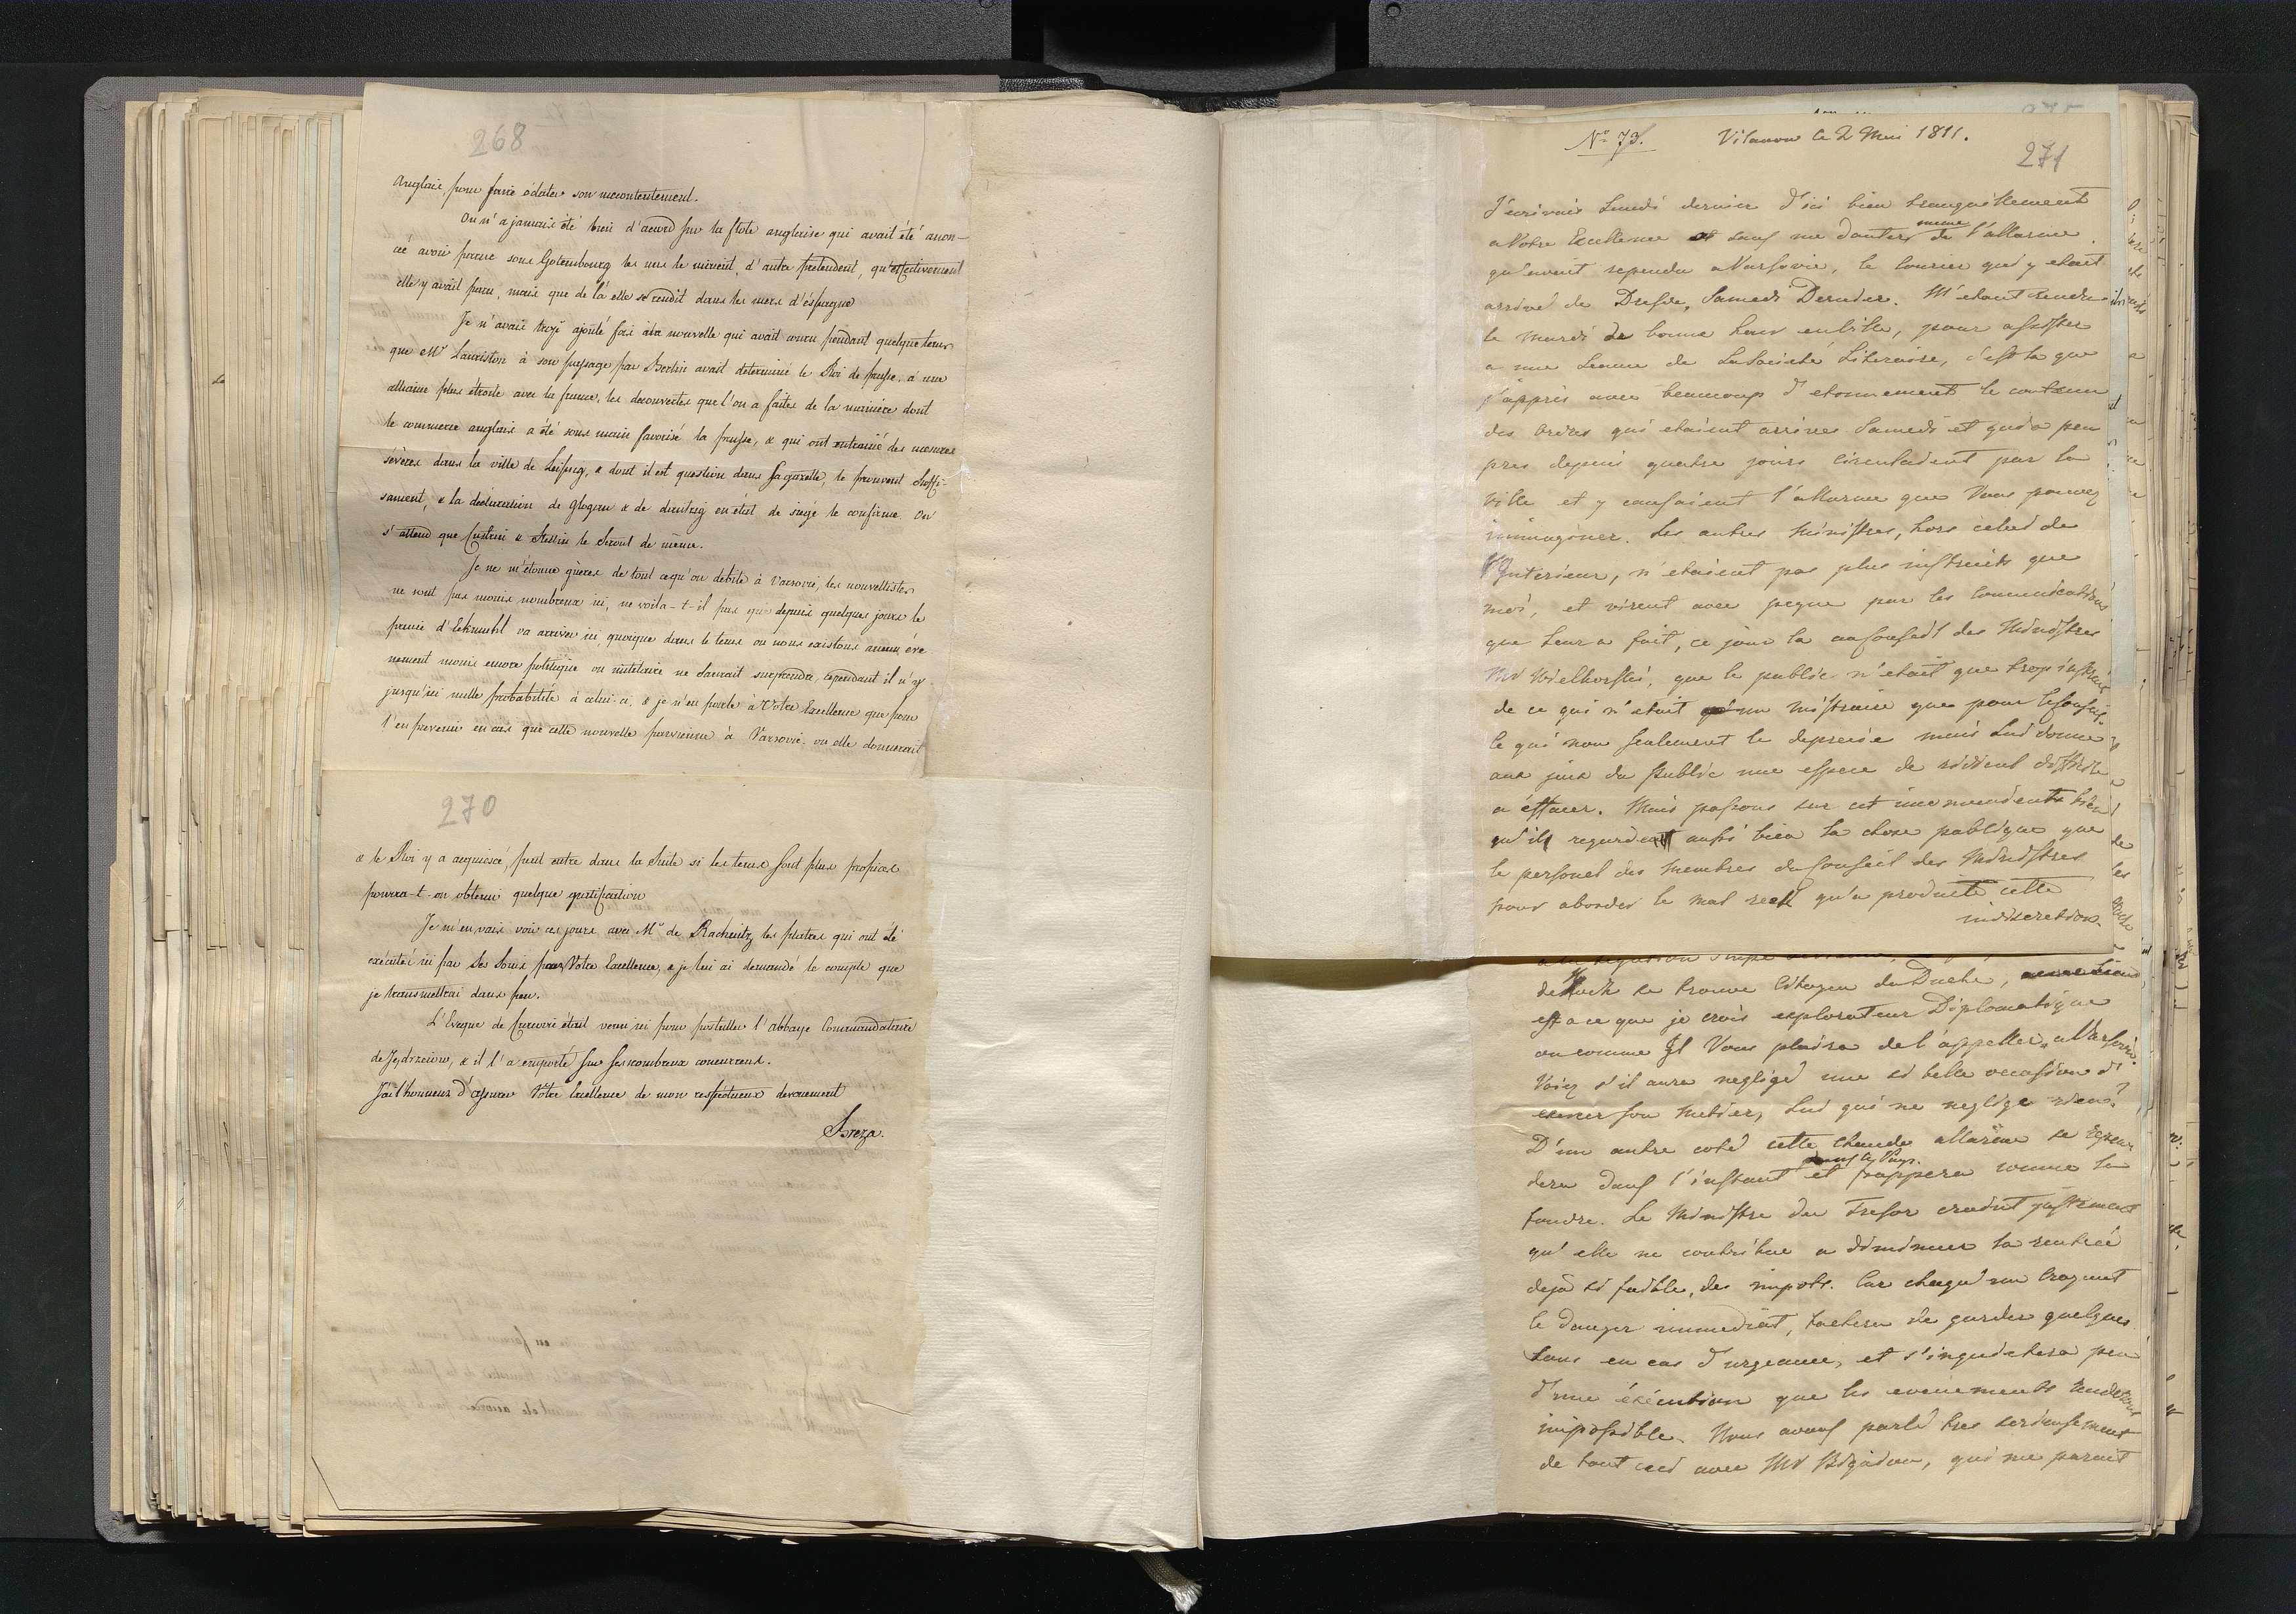 268
Anglais, pour faire éclater son mecontentement.
On n'a jamais été bien d'acord sur la flote anglaise qui avait été anon-
cée avoir parue sous Gotembourg les uns le nioient, d'autre pretendent, qu'effectivement
elle y avait paru, mais que de là elle se rendit dans les mers d'éspagne
Je n'avais trop ajouté foi à la nouvelle qui avait couru pendant quelque tems
que Mr Lauriston à son passage par Berlin avait determiné le Roi de prusse à une
alliance plus étroite avec la france, les decouvertes que l'on a faites de la manière dont
le commerce anglais a été sous main favorisé la prusse, & qui ont entrainé des mesures
sévères dans la ville de Leipsig, & dont il est question dans la gazette, le prouvent suffi-
sament, & la declaration de Glogau & de dantzig en état de siége le confirme. On
s'attend que Custrin & Stettin le seront de même.
Je ne m'étonne guères de tout ce qu'on debite à Varsovie, les nouvellistes
ne sont pas moins nombreux ici, ne voila-t-il pas que depuis quelques jours le
prince d'Eckmuhl va arriver ici, quoique dans le tems où nous existons aucun éve
nement moins encore politique ou militaire ne saurait surprendre, cependant il n'y
jusqu'ici nulle probabilité à celui-ci, & je n'en parle à Votre Excellence que pour
l'en prevenir en cas que cette nouvelle parvienne à Varsovie où elle donnerait
270
& le Roi y a acquiescé, peut etre dans la suite si les tems sont plus propices
pourra-t-on obtenir quelque gratification
Je m'en vais voir ces jours avec Mr de Racknitz les platres qui ont été
exécutés ici par ses soins pour Votre Excellence, & je lui ai demandé le compte que
je transmettrai dans peu.
L'Eveque de Cracovie était venu ici pour postuller l'abbaye Commandataire
de Jędrzeiow, & il l'a emporté sur ses nombreux concurrens.
J'ai l'honneur d'assurer Votre Excellence de mon respectueux devouement
Breza.
No 73. Vilanow le 2 Mai 1811.
271
J'ecrivais Lundi dernier d'ici bien tranquillement
a Votre Excellence et sans me douter meme de l'allarme
qu'avait rependu a Varsovie, le Courier qui y etait
arrivé de Dresde, Samedi Dernier. M'etant rendu
le mardi de bonne heur en ville, pour assister
a une Seance de la Societé Literaire, c'est la que
j'appris avec beaucoup d'etonnement le contenu
des ordres qui etaient arrivés Samedi et qui a peu
pres depuis quatre jours circulaient par la
ville et y causaient l'allarme que Vous pouvez
immaginer. Les autres Ministres, hors celui de
l'Interieur, n'etaient pas plus instruits que
moi, et virent avec peyne par les Communications
que leur a fait, ce jour la au Conseil des Ministres
Mr Wielhorski, que le public n'etait que trop instruit
de ce qui n'etait un mistaire que pour le Conseil
ce qui non seulement le deprecie mais lui donne
aux jeux du Public une espece de ridicul dificile
a éffacer. Mais passons sur cet inconvenients bien
qu'ils regardent aussi bien la chose publique que
le personel des Membres du Conseil des Ministres
pour aborder le mal reel qu'a produite cette
indiscretion.
se trouve Citoyen du Duché,
est a ce que je crois explorateur Diplomatique
ou comme Il Vous plaira de l'appeller, a Varsovie.
Voiez s'il aura negligé une si belle occasion d'
exercer son metier, lui qui ne neglige rien?
D'un autre coté cette chaude allarme se repan-
dera dans l'instant dans le Pays et frappera comme la
foudre. Le Ministre du Tresor craint justement
qu'elle ne contribue a diminuer la rentrée
deja si faible, des impots. Car chaqu'un croyant
le danger immediat, tachera de garder quelques
sous en cas d'urgeance, et s'inquietera peu
d'une éxécution que les evenements renderont
impossible. Nous avons parlé tres serieusement
de tout ceci avec Mr Bignion, qui me parait